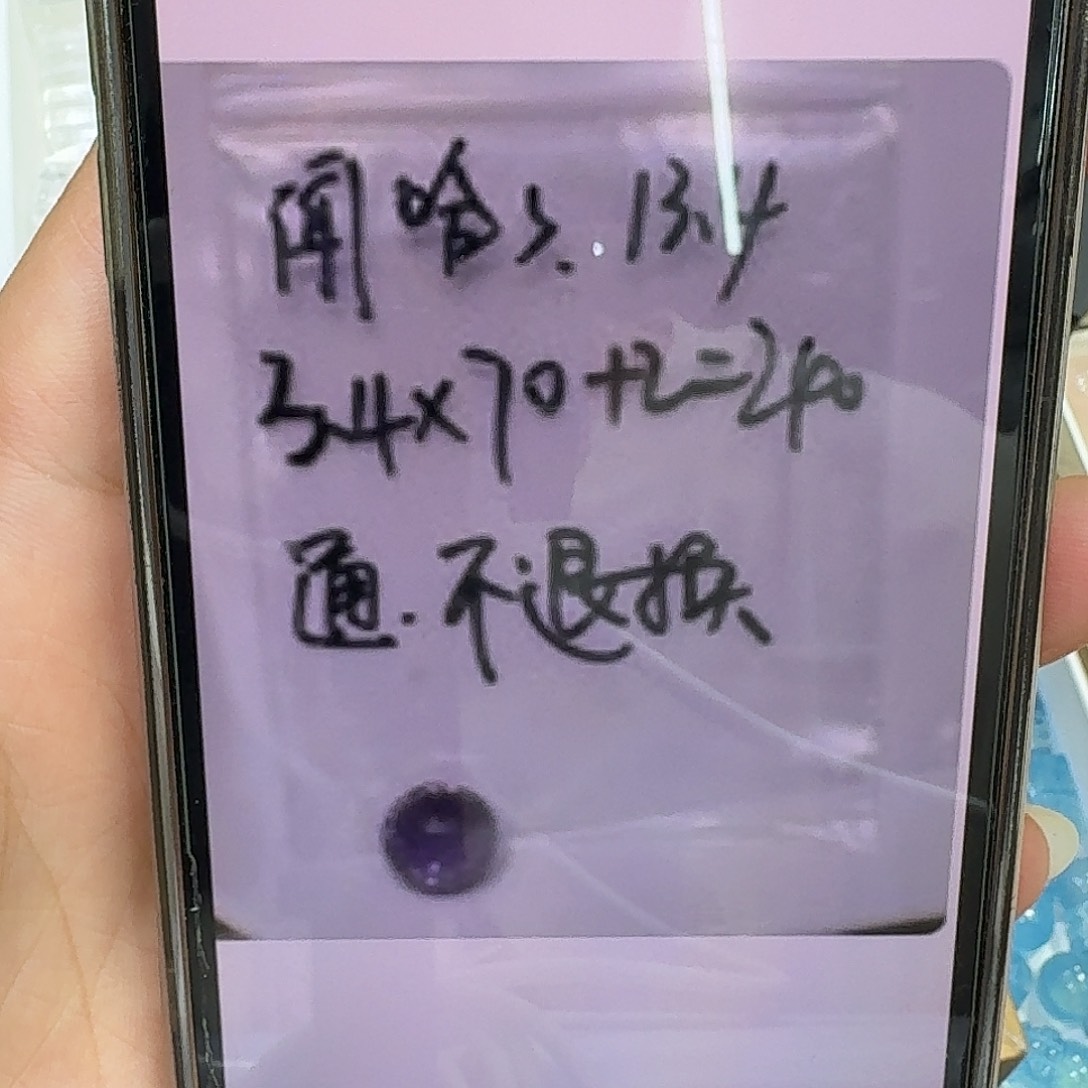 闻哈3.13.4
3.4×70+2=240
通.不退换